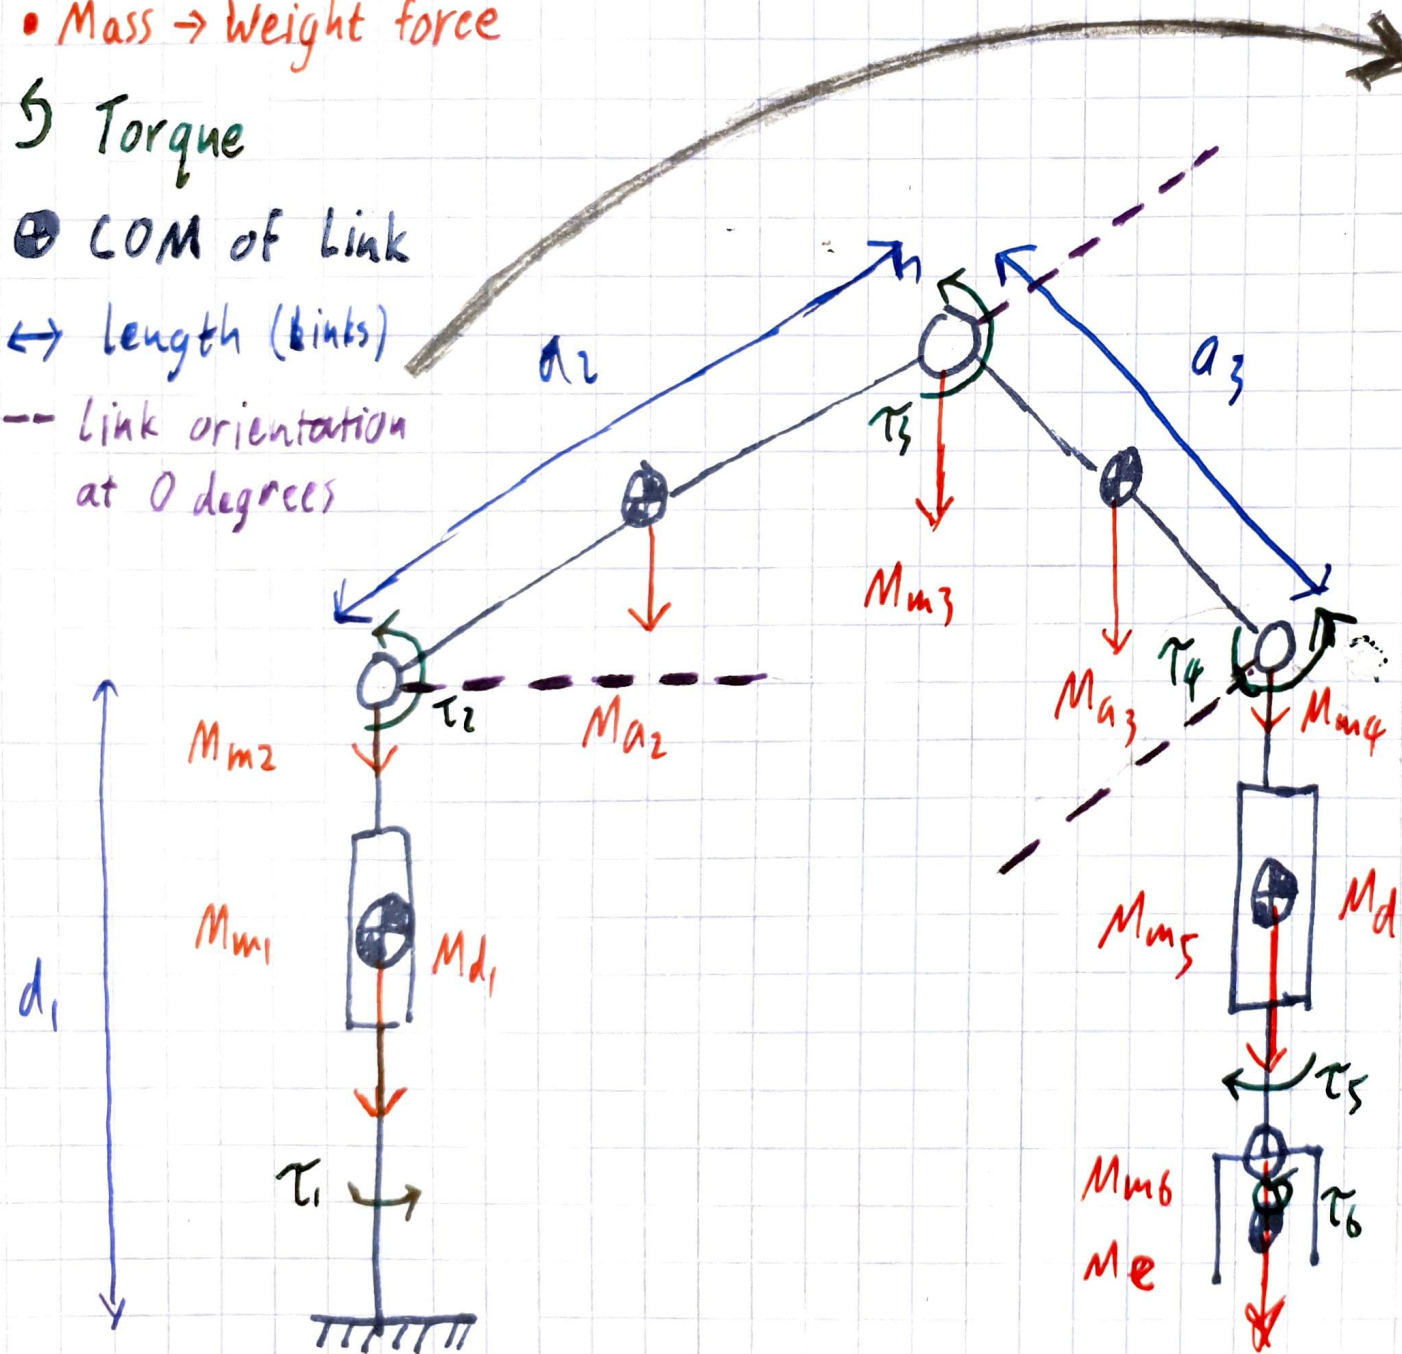 • Mass → Weight force
Torque
COM of Link
↔ length (Links)
-- link orientation
at 0 degrees
a2
a3
τ3
Mm3
τ4
Ma3
Mm4
τ2
Mm2
Ma2
Mm1
Md1
Mm5
Md
d1
τ5
τ1
Mm6
τ6
Me